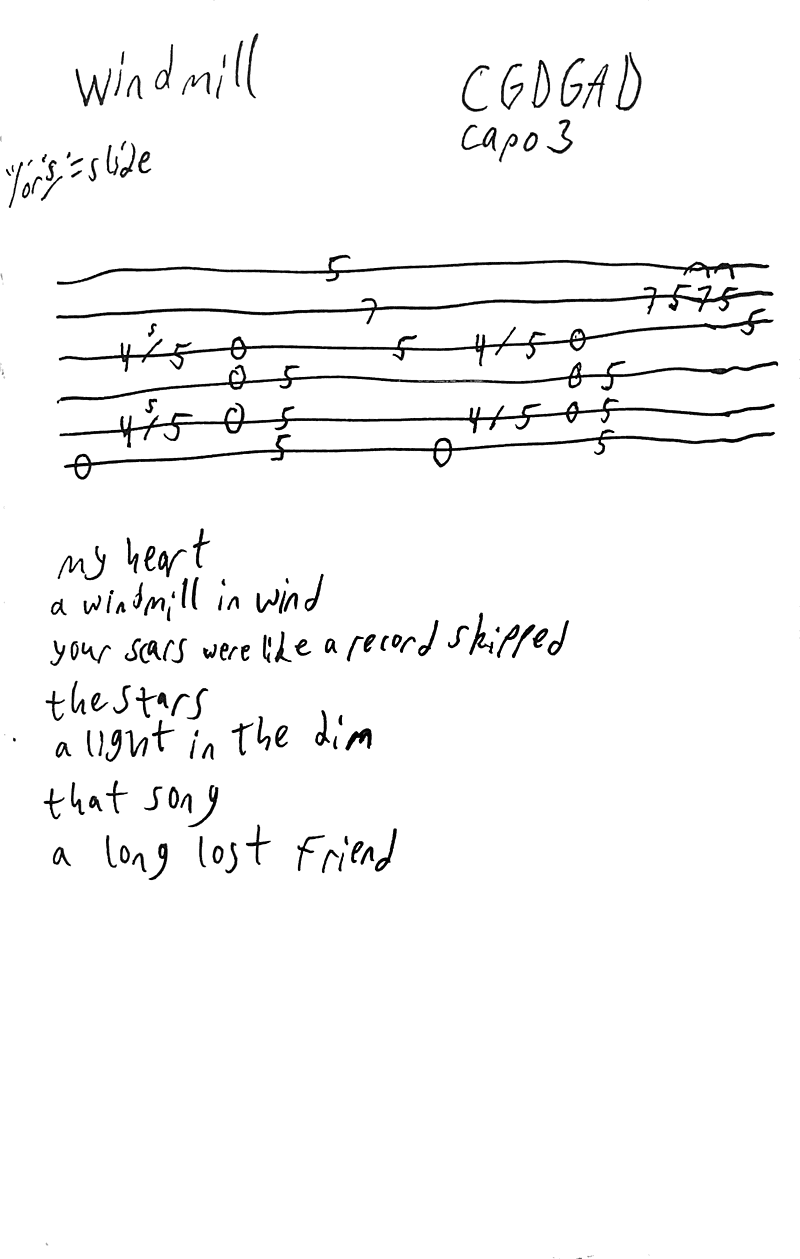 Windmill
CGDGAD
capo 3
"/ or s/" = slide
5
7 7 5 7 5
4 s/ 5 0 5 4 / 5 0 5
0 5 0 5
4 s/ 5 0 5 4 / 5 0 5
0 5 0 5
my heart
a windmill in wind
your scars were like a record skipped
the stars
a light in the dim
that song
a long lost friend